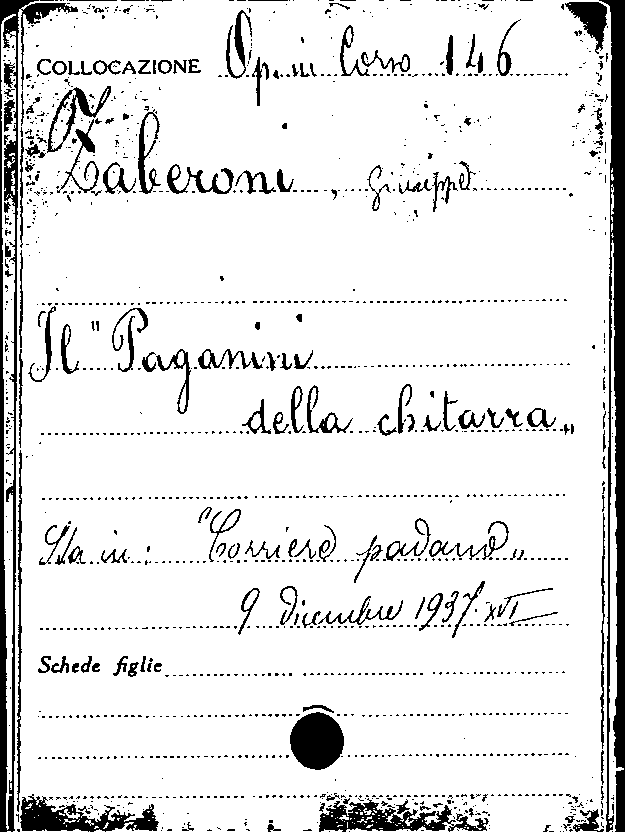 COLLOCAZIONE Op. in Corso 146
Zaberoni, Giuseppe
Il "Paganini
della chitarra„
Sta in: "Corriere padano„
9 dicembre 1937. XVI
Schede figlie